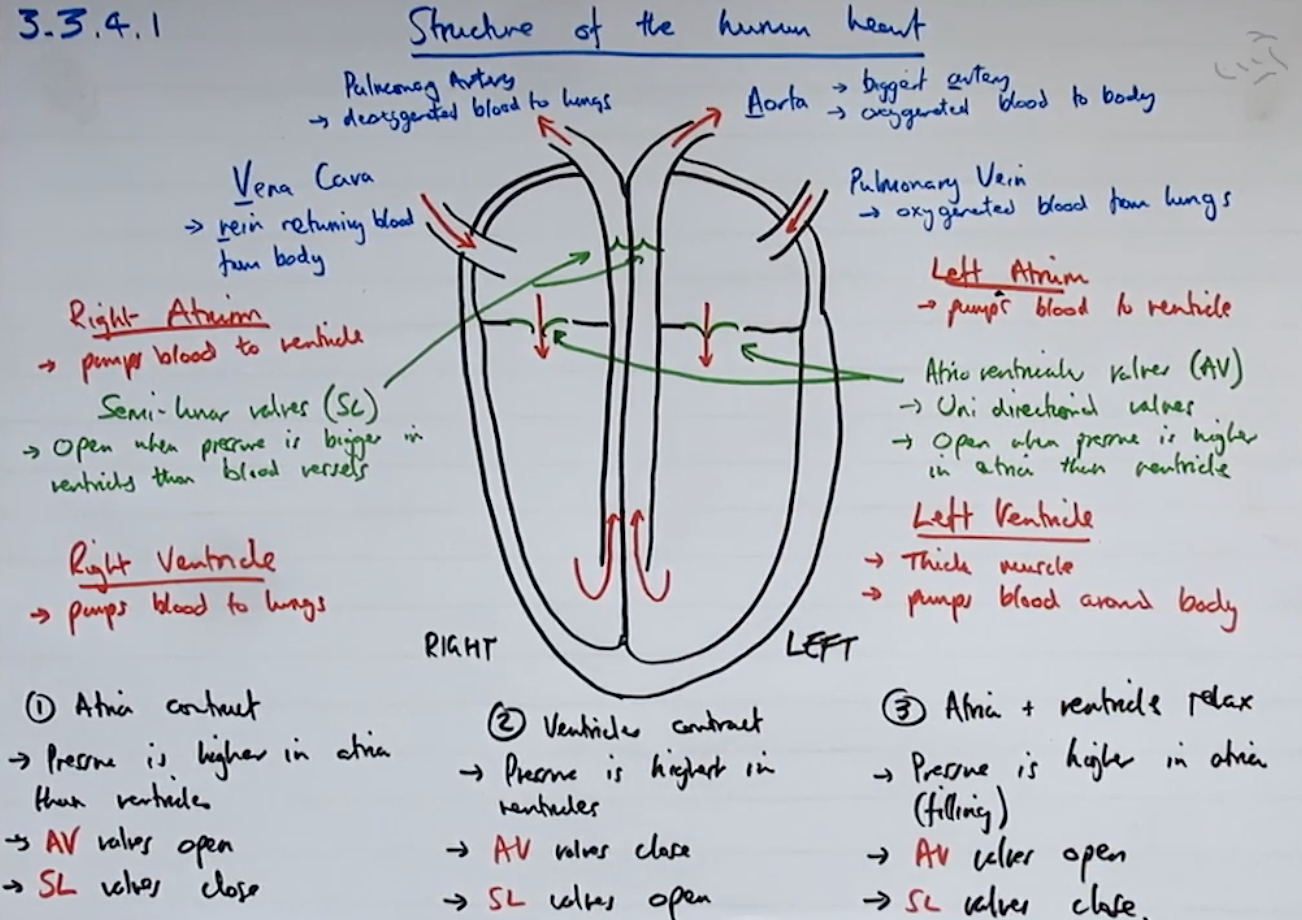 3.3.4.1
Structure of the human heart
Pulmonary Artery
→ deoxygenated blood to lungs
Aorta
→ biggest artery
→ oxygenated blood to body
Vena Cava
→ vein returning blood
from body
Pulmonary Vein
→ oxygenated blood from lungs
Right Atrium
→ pumps blood to ventricle
Left Atrium
→ pumps blood to ventricle
Semi-lunar valves (SL)
→ Open when pressure is bigger in
ventricles than blood vessels
Atrioventricular valves (AV)
→ Uni directional valves
→ Open when pressure is higher
in atria than ventricle
Right Ventricle
→ pumps blood to lungs
Left Ventricle
→ Thick muscle
→ pumps blood around body
RIGHT
LEFT
① Atria contract
→ Pressure is higher in atria
than ventricles
→ AV valves open
→ SL valves close
② Ventricles contract
→ Pressure is highest in
ventricles
→ AV valves close
→ SL valves open
③ Atria + ventricles relax
→ Pressure is higher in atria
(filling)
→ AV valves open
→ SL valves close.